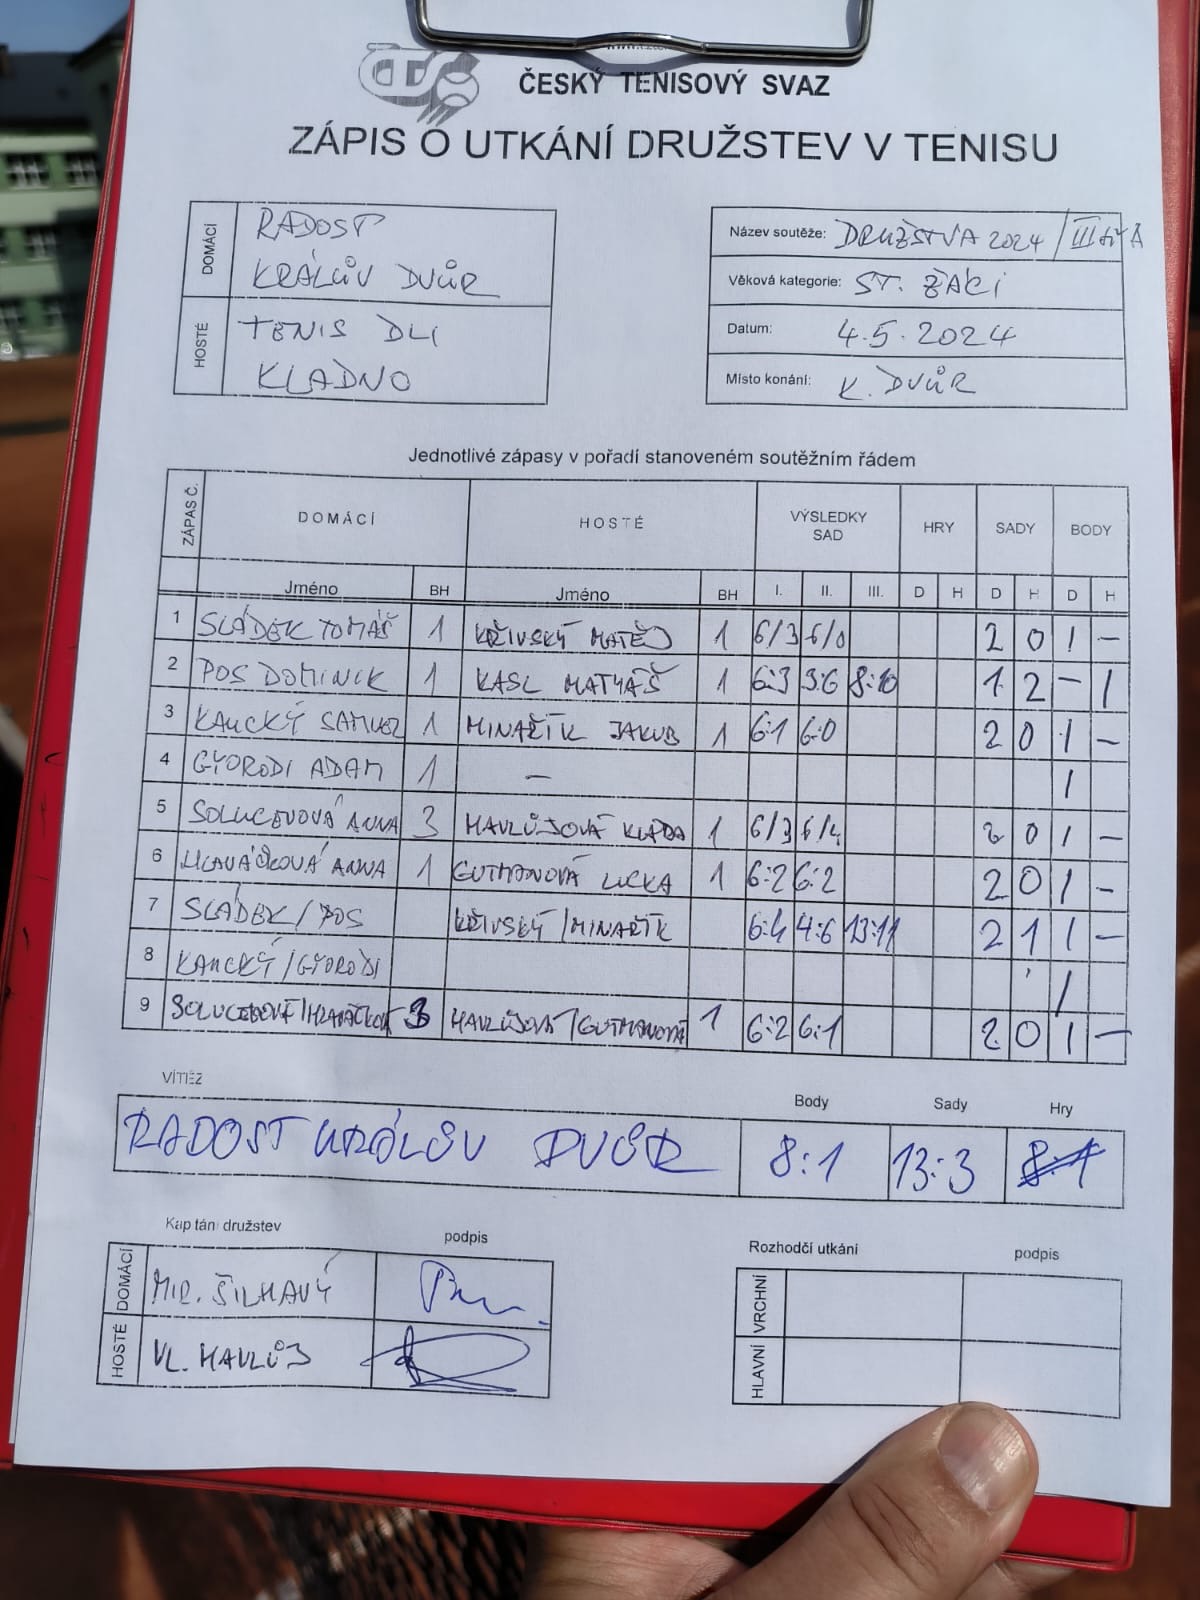 ČESKÝ TENISOVÝ SVAZ
ZÁPIS O UTKÁNÍ DRUŽSTEV V TENISU
DOMÁCÍ RADOST
KRÁLŮV DVŮR
HOSTÉ TENIS DLI
KLADNO
Název soutěže: DRUŽSTVA 2024 / III tř A
Věková kategorie: ST. ŽÁCI
Datum: 4.5.2024
Místo konání: K. DVŮR
Jednotlivé zápasy v pořadí stanoveném soutěžním řádem
ZÁPAS Č. DOMÁCÍ HOSTÉ VÝSLEDKY SAD HRY SADY BODY
Jméno BH Jméno BH I. II. III. D H D H D H
1 SLÁDEK TOMÁŠ 1 KŘIVSKÝ MATĚJ 1 6/3 6/0 2 0 1 –
2 POS DOMINIK 1 KASL MATYÁŠ 1 6:3 3:6 8:10 1 2 – 1
3 KAUCKÝ SAMUEL 1 MINAŘÍK JAKUB 1 6:1 6:0 2 0 1 –
4 GYORODI ADAM 1 – 1
5 ANNA 3 HAVLŮJOVÁ 1 6/3 6/4 2 0 1 –
6 HLAVÁČKOVÁ ANNA 1 GUTMANOVÁ LUCKA 1 6:2 6:2 2 0 1 –
7 SLÁDEK / POS KŘIVSKÝ / MINAŘÍK 6:4 4:6 13:11 2 1 1 –
8 KAUCKÝ / GYORODI 1
9 / HLAVÁČKOVÁ 3 HAVLŮJOVÁ / GUTMANOVÁ 1 6:2 6:1 2 0 1 –
VÍTĚZ Body Sady Hry
RADOST KRÁLŮV DVŮR 8:1 13:3 8:1
Kapitáni družstev podpis
DOMÁCÍ MIR. ŠILHAVÝ
HOSTÉ VL. HAVLŮJ
Rozhodčí utkání podpis
VRCHNÍ
HLAVNÍ